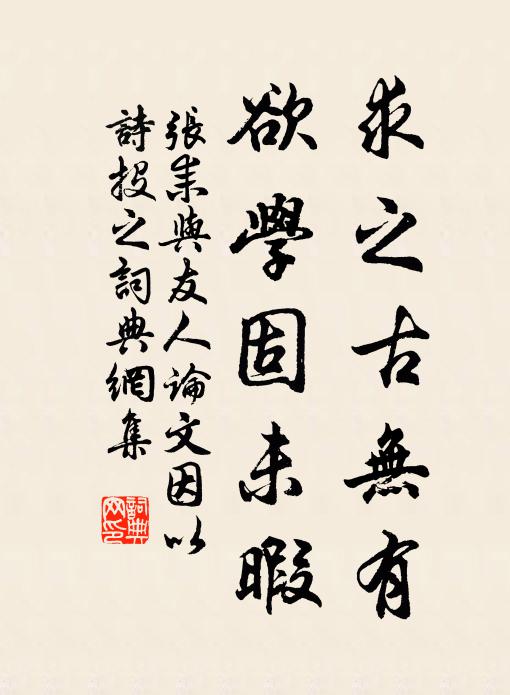 求之古無有
欲學固未暇
張耒與友人論文因以
詩投之詞典網集
詞典網印